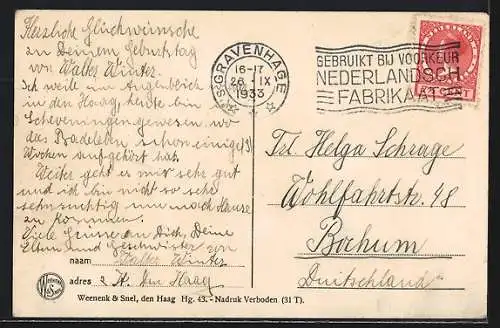 Herzliche Glückwünsche
zu Deinem Geburtstag
von Walter Winter.
Ich weile im Augenblick
in den Haag, heute bin
Scheveningen gewesen, wo
das Badeleben schon einige (3)
Wochen aufgehört hat.
Weiter geht es mir sehr gut
und ich bin nicht so sehr
sehnsüchtig um nach Hause
zu kommen.
Viele Grüsse an Dich, Deine
Eltern und Geschwister von
naam Walter Winter
adres z. Zt. Den Haag
Weenenk & Snel, den Haag Hg. 43. - Nadruk Verboden (31 T).
'S GRAVENHAGE
16-17
26 IX
1933
GEBRUIKT BIJ VOORKEUR
NEDERLANDSCH
FABRIKAAT
NEDERLAND
CENT
Frl. Helga Schrage
Wohlfahrtstr. 48
Bochum
Duitschland